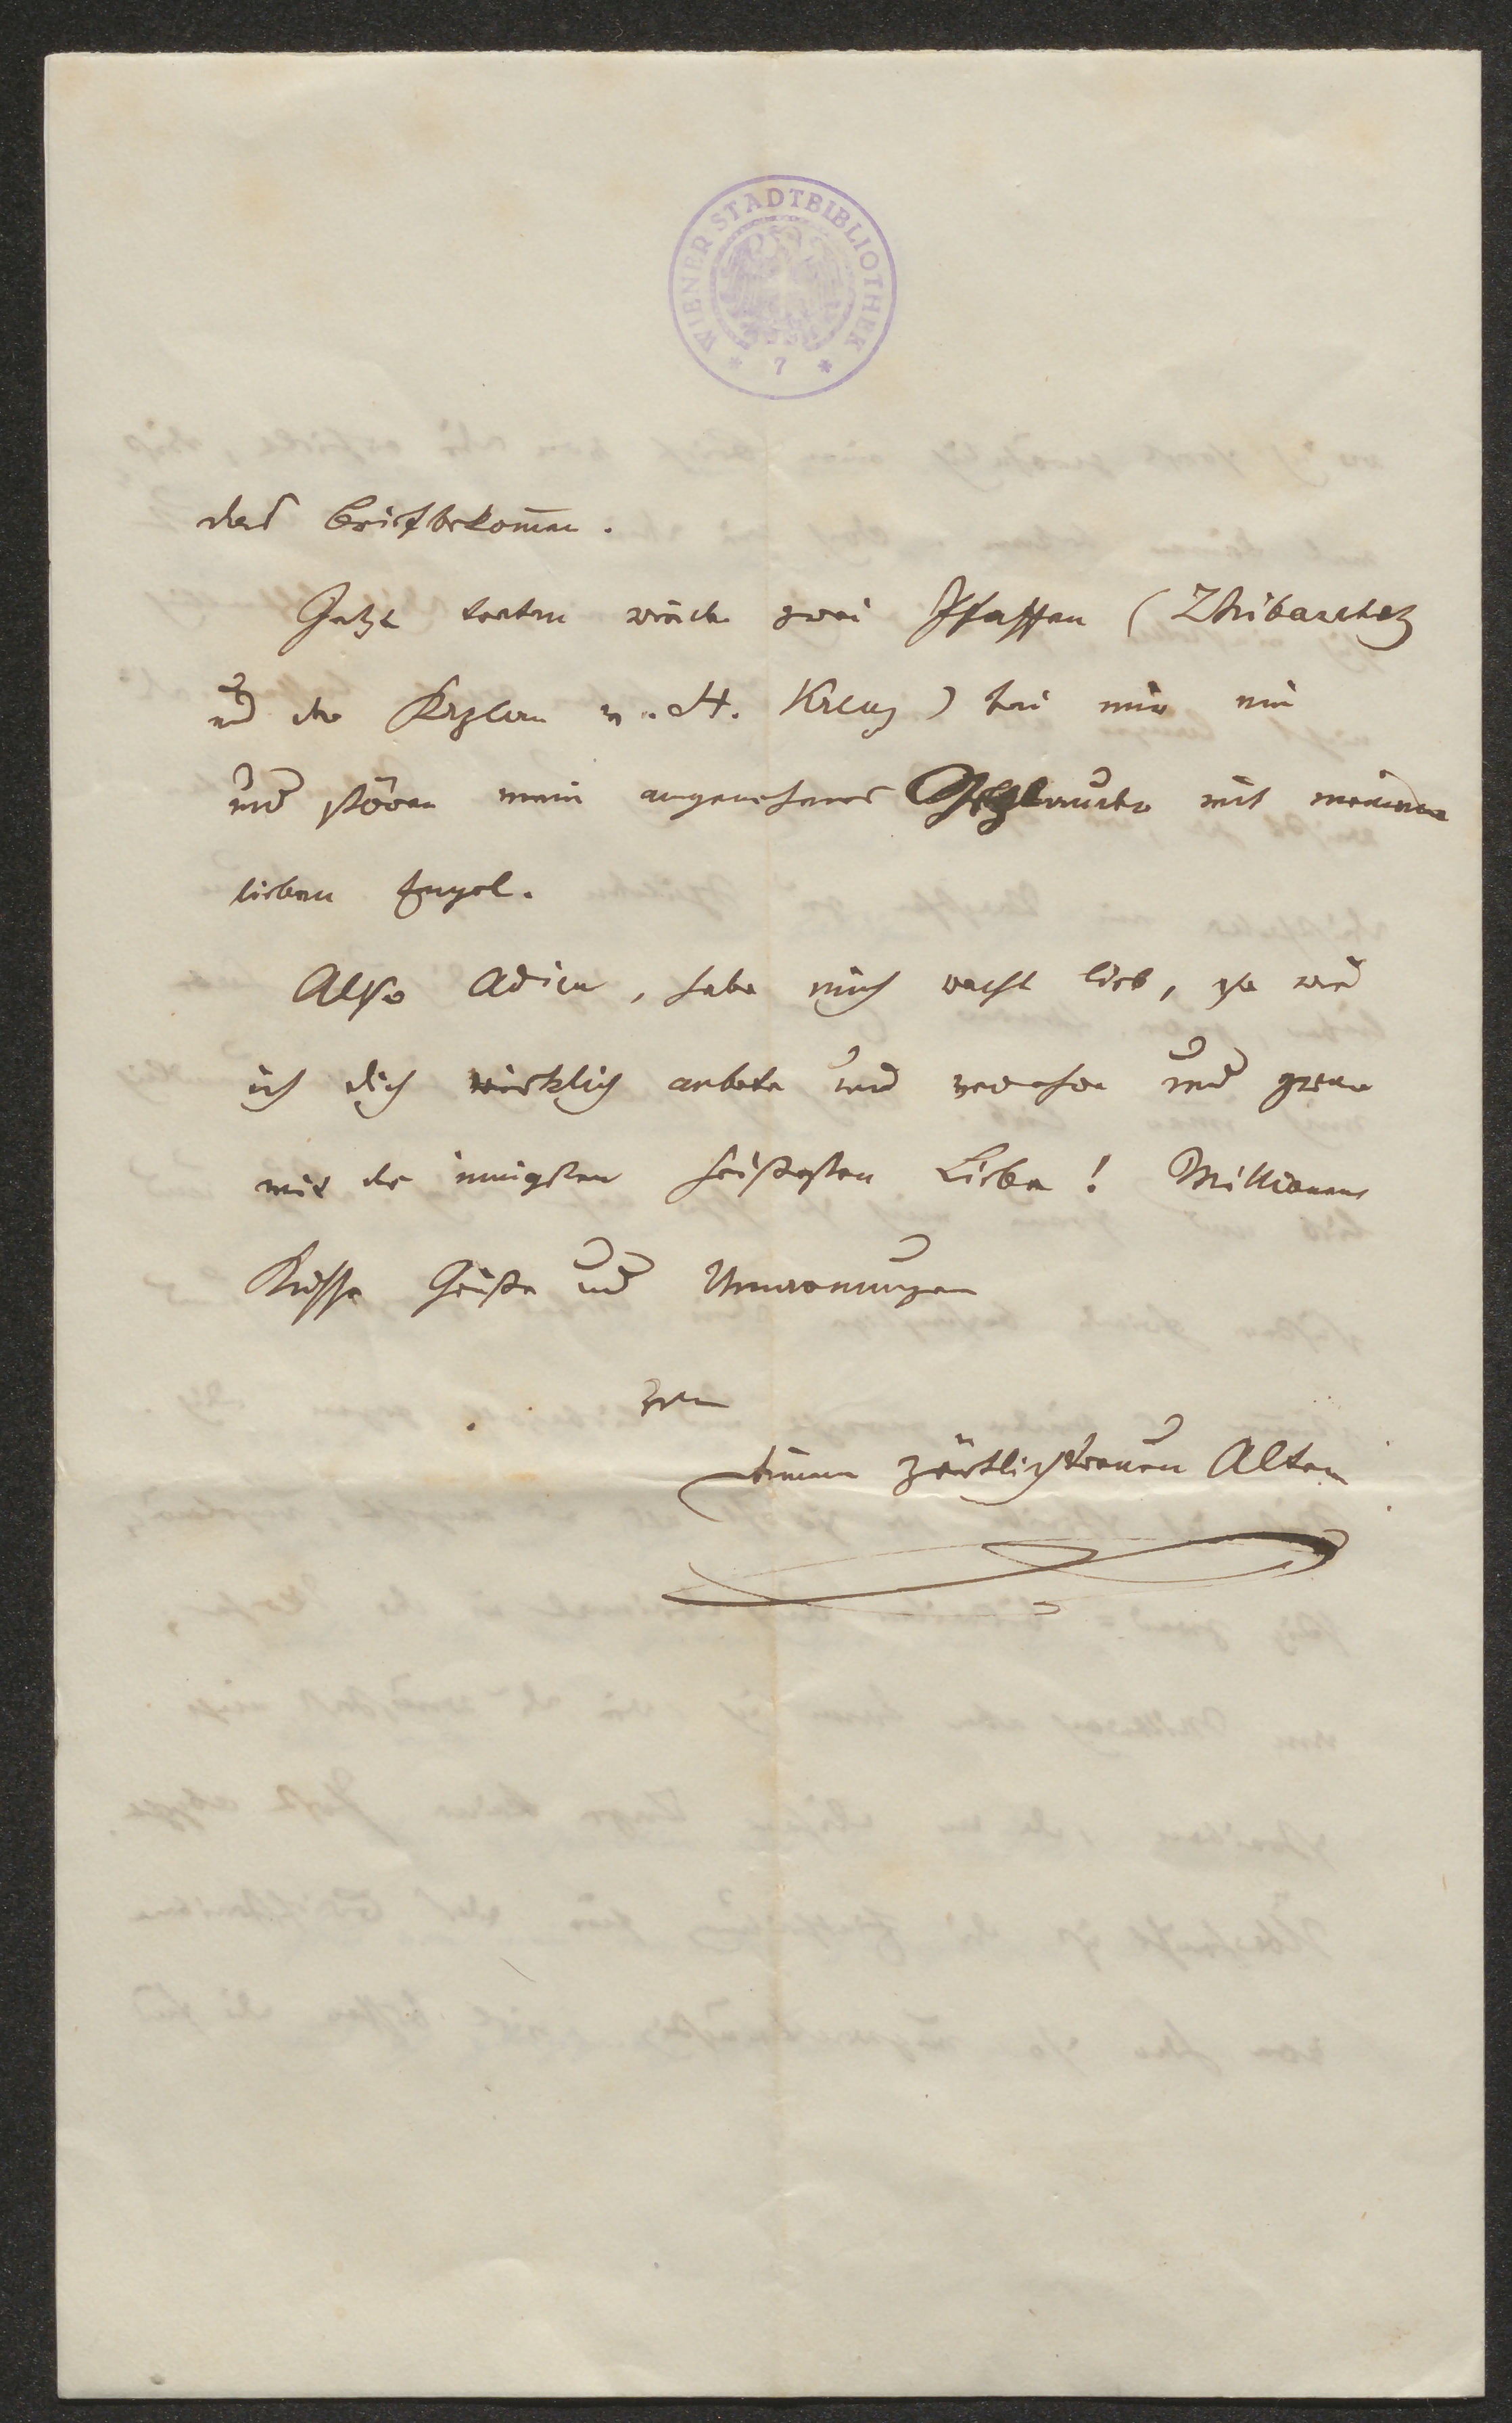 WIENER STADTBIBLIOTHEK
* 7 *
das Briefbekom̅en.
Jetzt treten wieder zwei Pfaffen (
und der Kaplan v. H. Kreuz) bei mir ein
und stören mein angenehmes Geplauder mit meinem
lieben Engel.
Also Adieu, habe mich recht lieb, so wie
ich dich wirklich anbete und verehre und zwar
mit der innigsten heißesten Liebe! Millionen
Küsse Grüße und Umarmungen
von
deinem zärtlichtreuen Alten